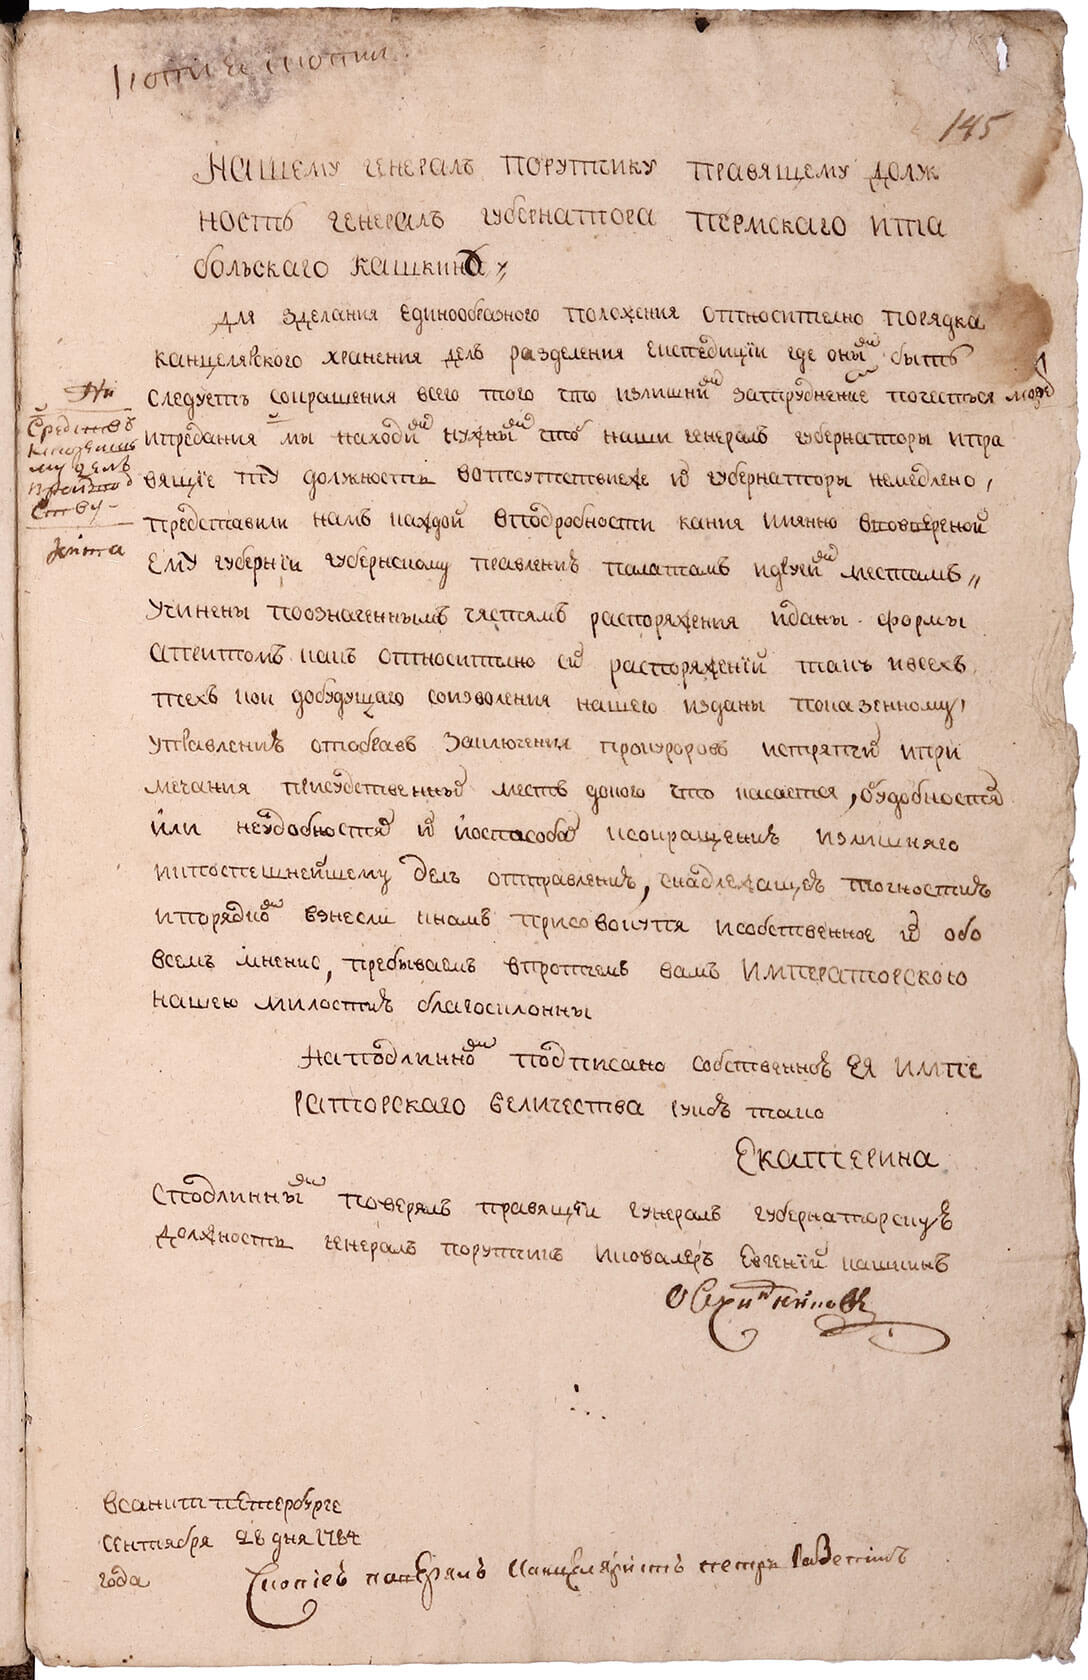 Копия с копии
145
Нашему генералъ порутчику правящему долж
ность генералъ губернатора пермскаго ита
больскаго кашкину
для зделания единообразного положения относително порядка
канцелярского хранения делъ разделения експедицiи где оныя быть
следуетъ сокращения всего того что излишнии затруднение почесться може
ипредания мы находи нужны что наши генералъ губернаторы ипра
вящiе ту должность вотсутствiеже ихъ губернаторы немедлено,
представили намъ накаждой вподробности какия имянно вповереной
ему губернiи губернскому правлению палатамъ идругим местамъ
учинены поозначеннымъ частямъ распоряжения иданы формы
стемъ какъ относително сих распоряженiй такъ ивсехъ
техъ кои добудущаго соизволения нашего изданы показенному
управлению отобравъ заключения прокуроровъ истряпчих ипри
мечания присудственных местъ доного что касается, оудобностях
или неудобностях их испособах ксокращению излишняго
икпоспешнейшему делъ отправлению, снадлежащею точностию
ипорядком взнесли кнамъ присовокупя исобственное их обо
всемъ мнение, пребываемъ впротчемъ вамъ императорскою
нашею милостию благосклонны
Наподлинном подписано собственною Ея импе
раторскаго величества рукою тако
Екатерина
Сподлинным поверялъ правящей генералъ губернаторскую
должность генералъ порутчикъ икавалеръ Евгенiй кашкинъ
всанктпетербурге
сентября 28 дня 1784
года
Скопiею поверялъ канцеляристъ петръ